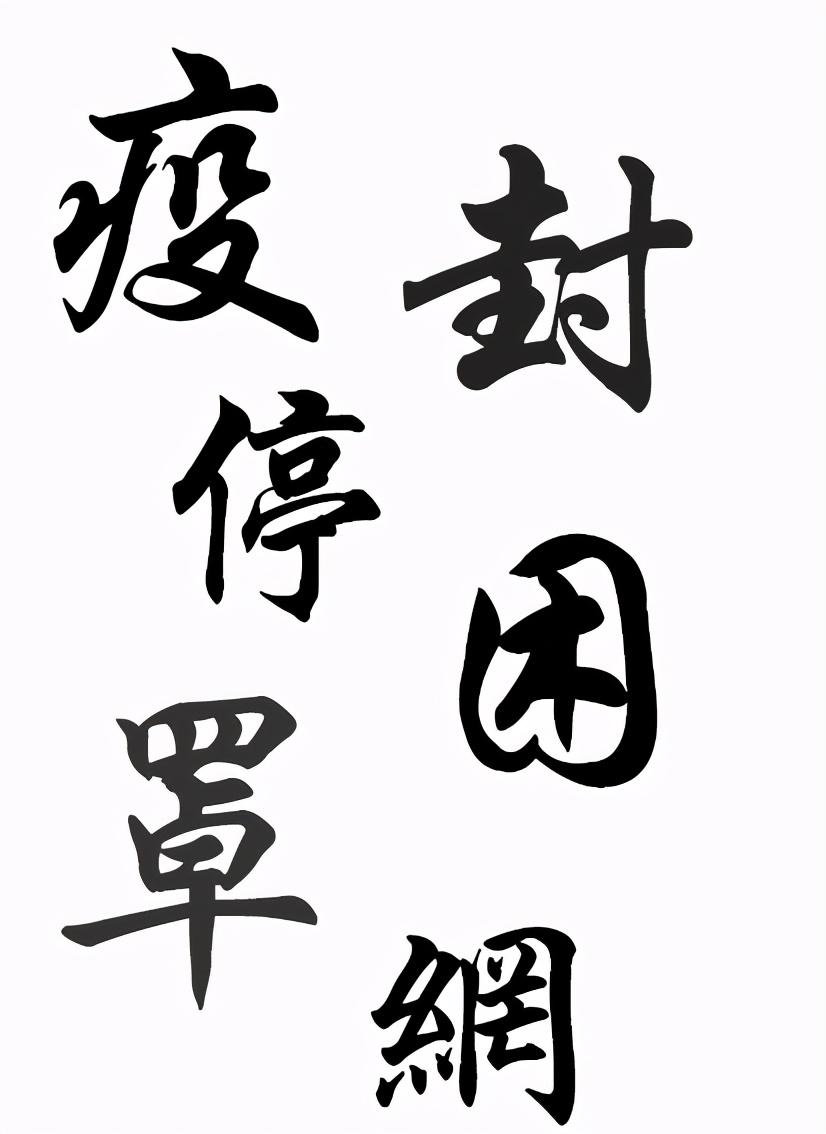 疫
封
停
困
罩
網